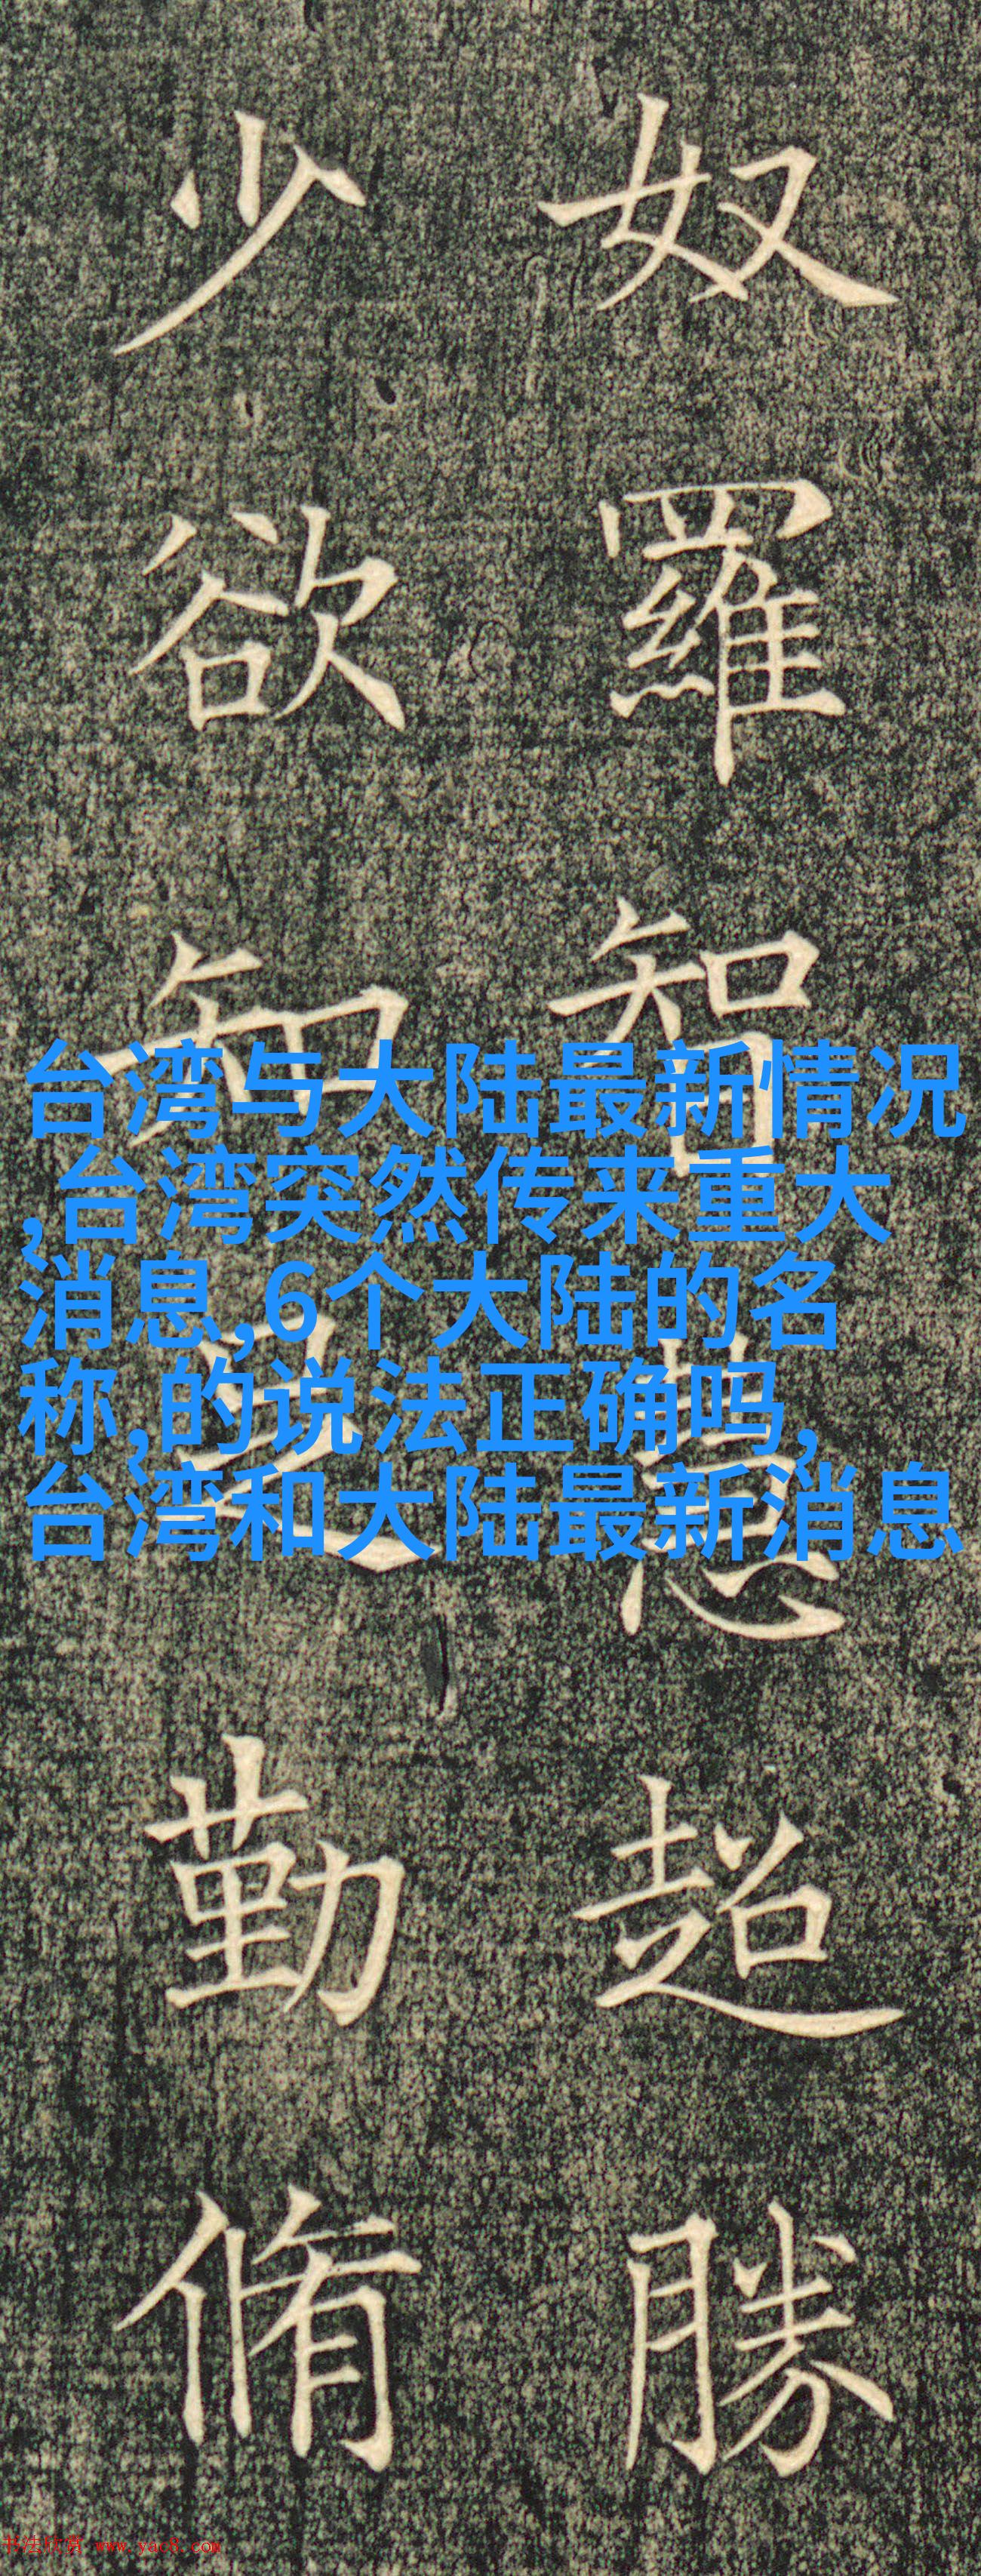 奴羅智慧超勝
少欲知足勤脩
台湾与大陆最新情况
,台湾突然传来重大
消息,6个大陆的名
称,的说法正确吗,
台湾和大陆最新消息
书法欣赏 www.yac8.com